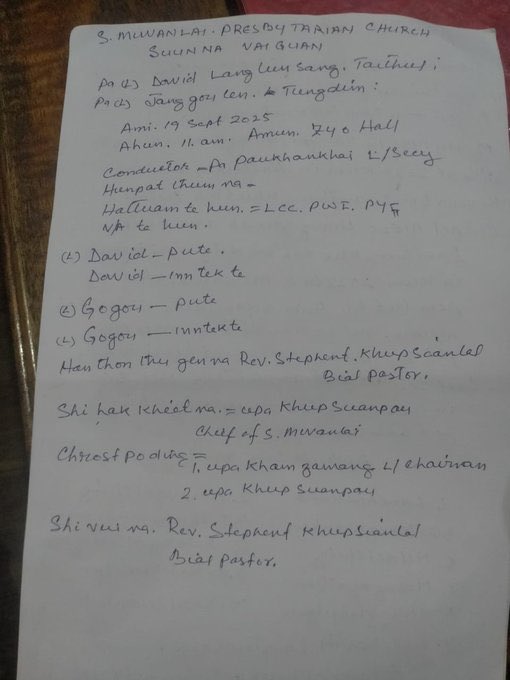 S. MUVANLAI. PRESBYTARIAN CHURCH
SUUNNA VAIGUAN
Pa (L) David Langlun Sang. Taithul;
Pa (L) Janggou len. Tungdim:
Ami. 19 Sept 2025
Ahun. 11. am. Amun. ZYO Hall
Conductor - Pa Paukhankhai L/Secy
Hunpat thumna -
Hattuam te hun. = LCC. PWF. PYF
N/A te hun.
(L) David - pute.
David - inntekte
(L) Gogou - pute
(L) Gogou - inntekte
Hanthon thugenna Rev. Stephent. Khupsianlal
Bial pastor.
Shi hak kheetna. = upa Khup Suanpau
Chief of S. Muvanlai
=
1. upa Kham zamang L/ Chairman
2. upa Khup Suanpau
Shi vui na. Rev. Stephent Khupsianlal
Bial pastor.